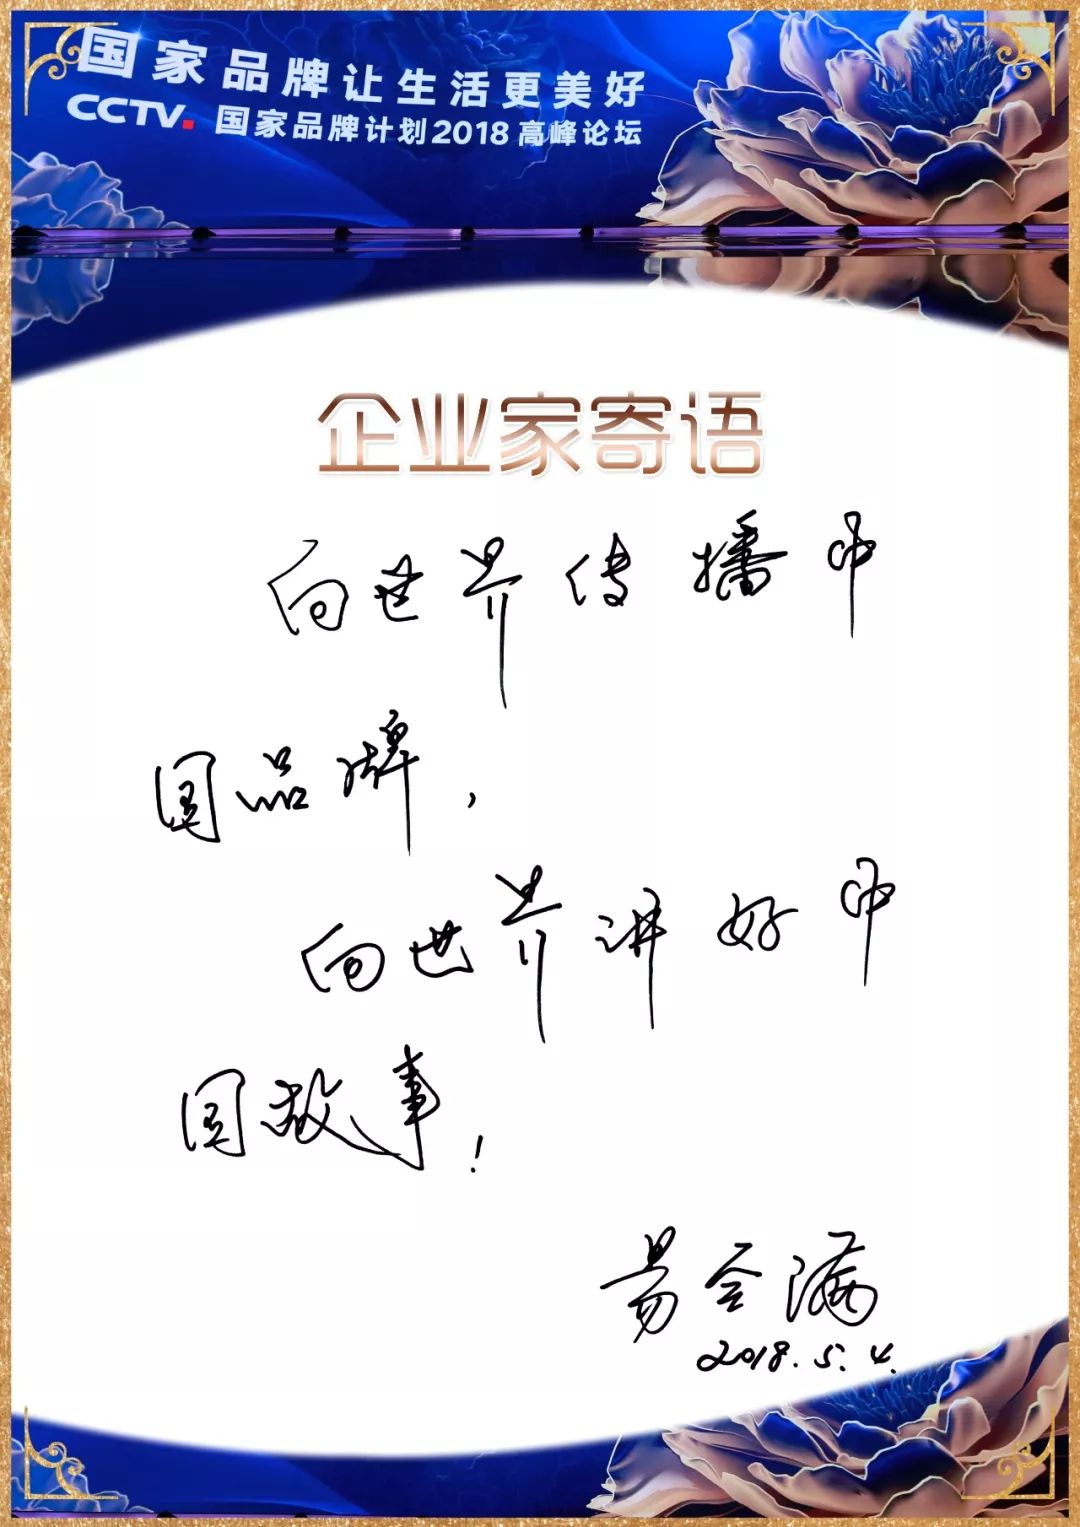 国家品牌让生活更美好
CCTV. 国家品牌计划2018高峰论坛
企业家寄语
向世界传播中
国品牌，
向世界讲好中
国故事！
易会满
2018.5.4.